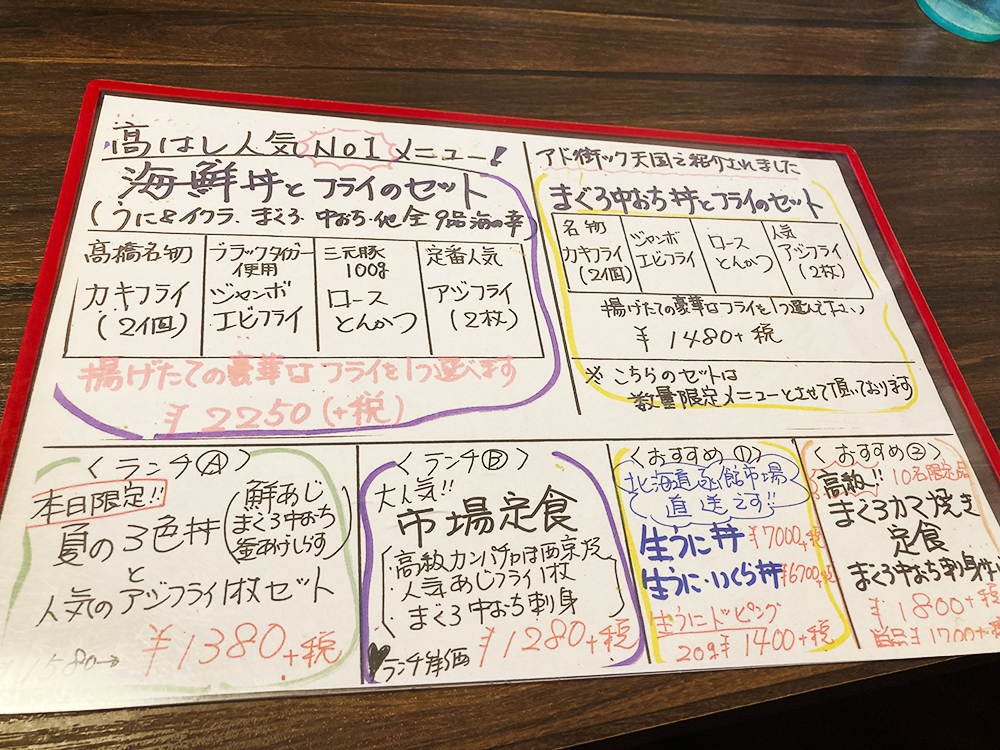 高はし人気 No1 メニュー!
海鮮丼とフライのセット
(うに&イクラ、まぐろ、中おち、他全9品海の幸)
高橋名物 カキフライ (2個)
ブラックタイガー使用 ジャンボエビフライ
三元豚100g ロースとんかつ
定番人気 アジフライ (2枚)
揚げたての豪華なフライを1つ選べます
¥2250(+税)
アド街ック天国で紹介されました
まぐろ中おち丼とフライのセット
名物 カキフライ (2個)
ジャンボエビフライ
ロースとんかつ
人気 アジフライ (2枚)
揚げたての豪華なフライを1つ選んで下さい
¥1480+税
※こちらのセットは
数量限定メニューとさせて頂いております
〈ランチⒶ〉
本日限定!!
夏の3色丼
(鮮あじ
まぐろ中おち
釜あげしらす)
と
人気のアジフライ1枚セット
1580→
¥1380+税
〈ランチⒷ〉
大人気!!
市場定食
(高級カンパチカマ西京焼
人気あじフライ1枚
まぐろ中おち刺身)
ランチ特価
¥1280+税
〈おすすめ①〉
北海道函館市場
直送です!!
生うに丼 ¥7000+税
生うに・いくら丼 ¥6700+税
生うにドッピング
20g¥1400+税
〈おすすめ②〉
高級!! 10名限定品
まぐろカマ焼き
定食
まぐろ中おち刺身
¥1800+税
単品¥1700+税